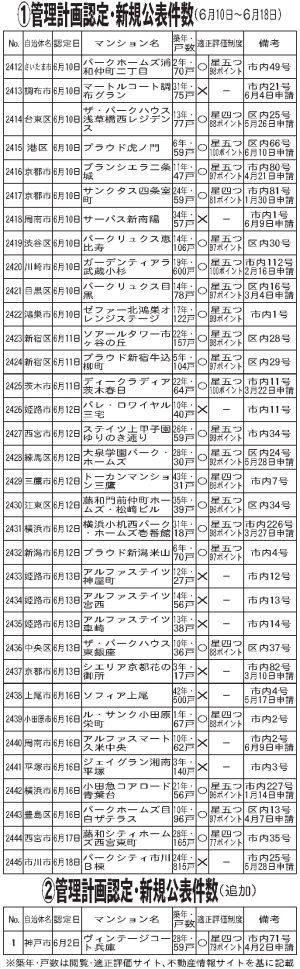 ①管理計画認定・新規公表件数(6月10日~6月18日)
No. 自治体名 認定日 マンション名 築年・戸数 適正評価制度 備考
2412 さいたま市 6月10日 パークホームズ浦和仲町二丁目 2年・70戸 ○ 星五つ 98ポイント 市内49号
2413 調布市 6月10日 マートルコート調布グラン 31年・75戸 × − 市内21号 6月4日申請
2414 台東区 6月10日 ザ・パークハウス浅草橋西レジデンス 13年・77戸 ○ 星四つ 88ポイント 区内25号 5月26日申請
2415 港区 6月10日 プラウド虎ノ門 6年・59戸 ○ 星五つ 100ポイント 区内66号 6月10日申請
2416 京都市 6月10日 ブランシエラ二条城 11年・47戸 ○ 星五つ 97ポイント 市内80号 4月21日申請
2417 京都市 6月10日 サンクタス四条室町 24年・59戸 ○ 星四つ 88ポイント 市内81号 1月30日申請
2418 周南市 6月10日 サーパス新南陽 34年・57戸 × − 市内1号 6月9日申請
2419 渋谷区 6月10日 パークリュクス恵比寿 14年・106戸 ○ 星五つ 97ポイント 区内30号
2420 川崎市 6月10日 ガーデンティアラ武蔵小杉 19年・600戸 ○ 星五つ 100ポイント 市内112号 2月16日申請
2421 目黒区 6月10日 パークリュクス目黒 14年・78戸 ○ 星五つ 97ポイント 区内16号 3月4日申請
2422 鴻巣市 6月10日 ゼファー北鴻巣オレンジステージ 17年・122戸 ○ 星五つ 99ポイント 市内1号
2423 新宿区 6月11日 ソアールタワー市ヶ谷の丘 22年・157戸 ○ 星五つ 98ポイント 区内28号
2424 新宿区 6月11日 プラウド新宿牛込柳町 5年・104戸 ○ 星五つ 97ポイント 区内29号
2425 茨木市 6月11日 ディークラディア茨木春日 22年・64戸 ○ 星五つ 100ポイント 市内11号 3月22日申請
2426 姫路市 6月12日 パレ・ロワイヤル三宅 10年・40戸 × − 市内11号
2427 西宮市 6月12日 ステイツ上甲子園ゆりのき通り 26年・59戸 ○ 星五つ 99ポイント 市内34号
2428 練馬区 6月12日 大泉学園パーク・ホームズ 28年・30戸 ○ 星五つ 92ポイント 区内24号 5月28日申請
2429 三鷹市 6月12日 トーカンマンション三鷹 43年・31戸 ○ 星四つ 86ポイント 市内7号
2430 江東区 6月12日 藤和門前仲町ホームズ・松みどり 35年・39戸 ○ 星五つ 96ポイント 区内34号
2431 横浜市 6月12日 横浜小机西パーク・ホームズ壱番館 31年・18戸 ○ 星五つ 98ポイント 市内226号 3月27日申請
2432 新潟市 6月12日 プラウド新潟米山 6年・70戸 ○ 星五つ 97ポイント 市内4号
2433 姫路市 6月13日 アルファステイツ神屋町 12年・27戸 × − 市内12号
2434 姫路市 6月13日 アルファステイツ宮西 14年・56戸 × − 市内13号
2435 姫路市 6月13日 アルファステイツ車崎 13年・38戸 × − 市内14号
2436 中央区 6月13日 ザ・パークハウス東銀座 10年・36戸 ○ 星四つ 88ポイント 区内37号
2437 京都市 6月13日 シエリア京都花の御所 3年・17戸 × − 市内82号 3月10日申請
2438 上尾市 6月16日 ソフィア上尾 42年・500戸 × − 市内4号 5月17日申請
2439 小田原市 6月16日 ル・サンク小田原栄町 1年・67戸 ○ 星四つ 88ポイント 市内2号
2440 周南市 6月16日 アルファスマート久米中央 10年・62戸 × − 市内2号 6月9日申請
2441 平塚市 6月16日 ジェイグラン湘南平塚 3年・140戸 × − 市内3号
2442 横浜市 6月16日 小田急コアロード青葉台 21年・56戸 ○ 星五つ 96ポイント 市内227号 1月14日申請
2443 豊島区 6月16日 パークホームズ目白ザテラス 10年・96戸 ○ 星五つ 97ポイント 区内13号 4月7日申請
2444 西宮市 6月17日 藤和シティホームズ西宮東町 28年・165戸 ○ 星四つ 77ポイント 市内35号
2445 市川市 6月18日 パークシティ市川B棟 24年・815戸 × − 市内25号 5月28日申請
②管理計画認定・新規公表件数(追加)
No. 自治体名 認定日 マンション名 築年・戸数 適正評価制度 備考
1 神戸市 6月2日 ヴィンテージコート兵庫 28年・59戸 ○ 星四つ 79ポイント 市内71号 4月2日申請
※築年・戸数は閲覧・適正評価サイト、不動産情報サイトを基に記載